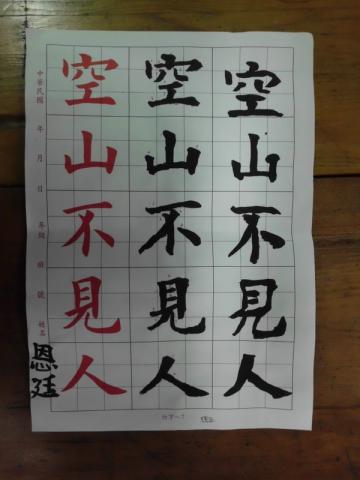 空山不見人
空山不見人
空山不見人
中華民國 年 月 日 年級 班 號 姓名
恩廷